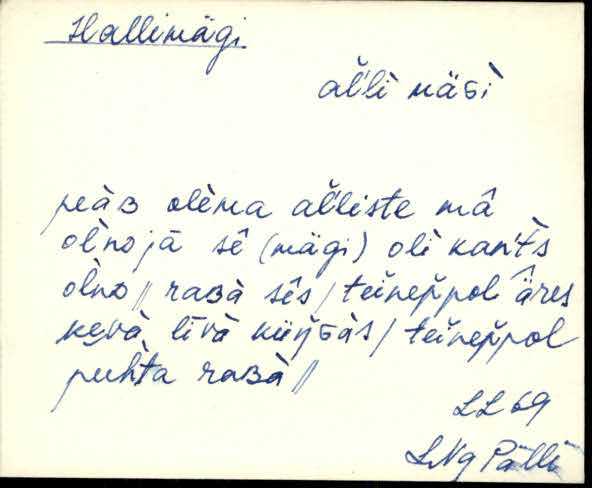 Hallimägi
al̆l̆i mäɢi
peàʙ olèma al̆l̆iste mâ
olnᴅ jā sê (mägi) oli kan̆ts
olnᴅ // raʙà sês / teĭneppol äres
kevà līvà küŋ̆ɢàs / teĭneppol
puhta raʙà //
LL 69
LNg Pälli